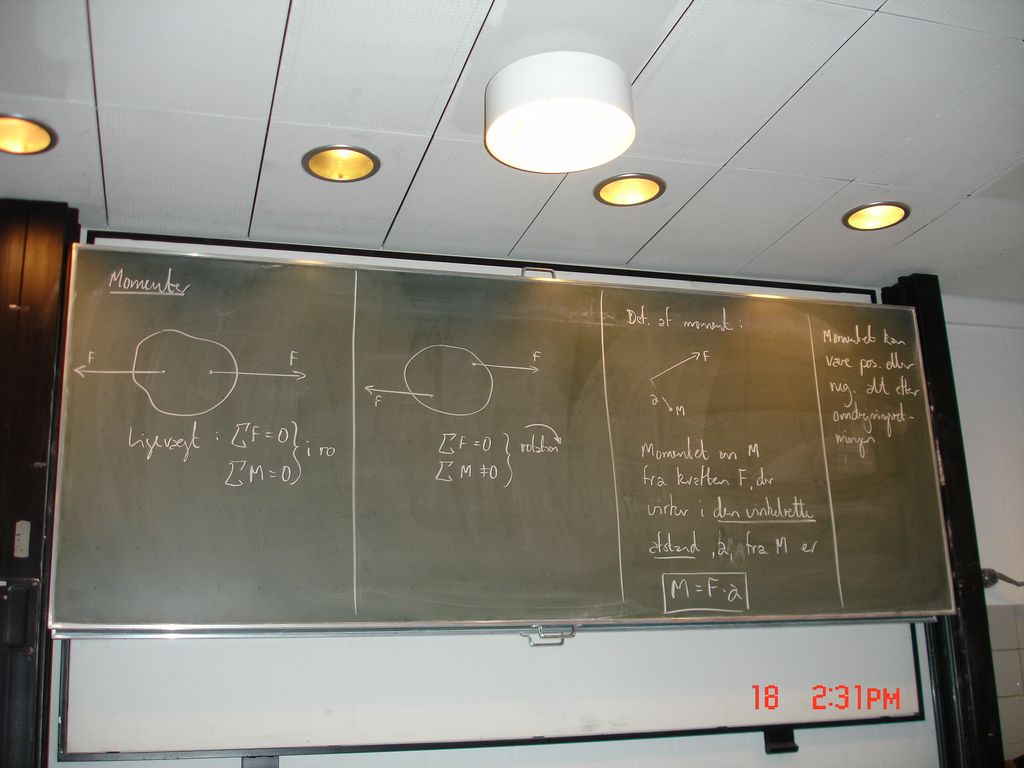 Momenter
F
F
Ligevægt : ΣF=0
ΣM=0
i ro
F
F
ΣF=0
ΣM≠0
rotation
Def. af moment :
F
a
M
Momentet om M
fra kraften F, der
virker i den vinkelrette
afstand , a, fra M er
M=F·a
Momentet kan
være pos. eller
neg. alt efter
omdrejningsret-
ningen
18 2:31PM